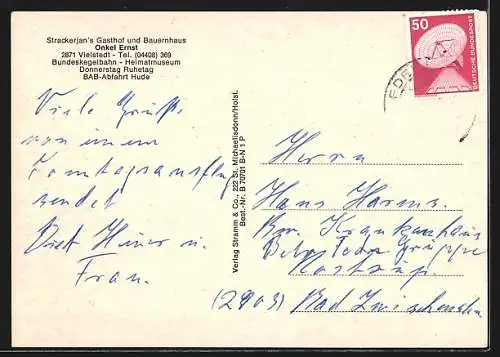 Strackerjan's Gasthof und Bauernhaus
Onkel Ernst
2871 Vielstedt - Tel. (04408) 369
Bundeskegelbahn - Heimatmuseum
Donnerstag Ruhetag
BAB-Abfahrt Hude
Viele Grüße
von einem
Sonntagsausflug
sendet
Frau.
Verlag Stramm & Co., 222 St. Michaelisdonn/Holst.
Best.-Nr. B 70701 B-N 1 P
50
DEUTSCHE BUNDESPOST
Herrn
Hans Harms
Bw. Krankenhaus
Rostrup
(2903) Bad Zwischenahn